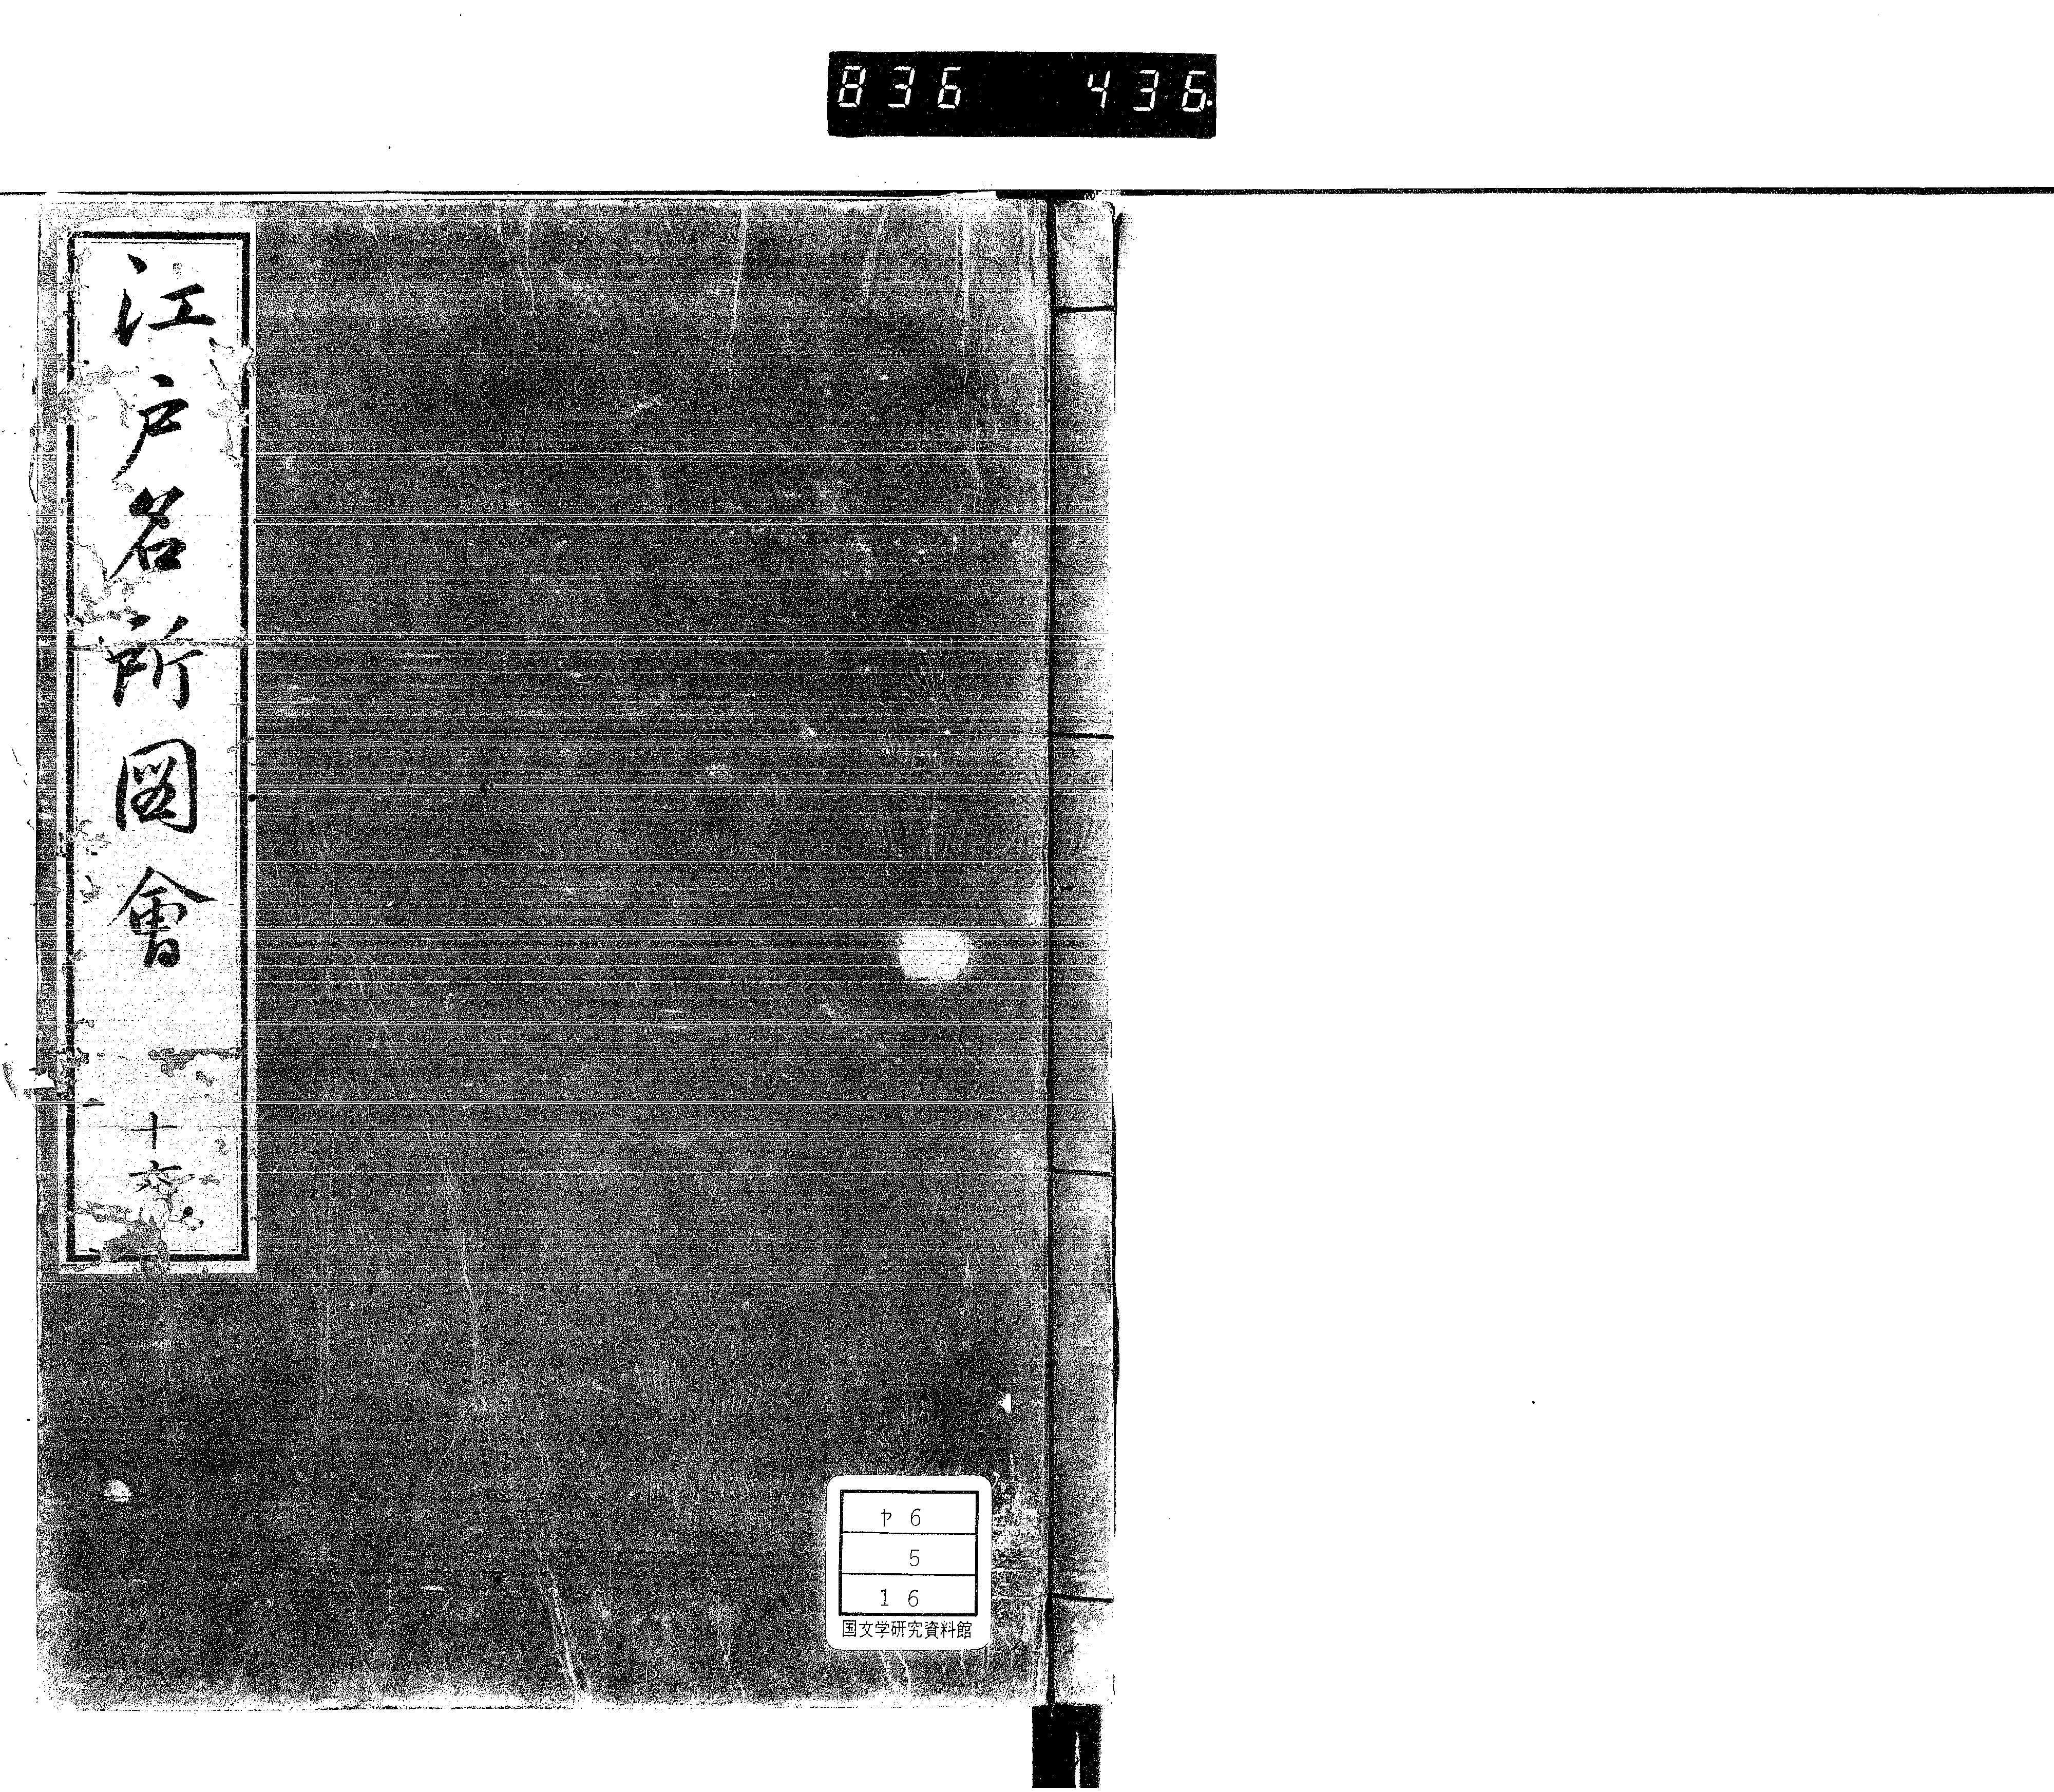 836 436.
江戸名所圖會 十六
ヤ6
5
16
国文学研究資料館